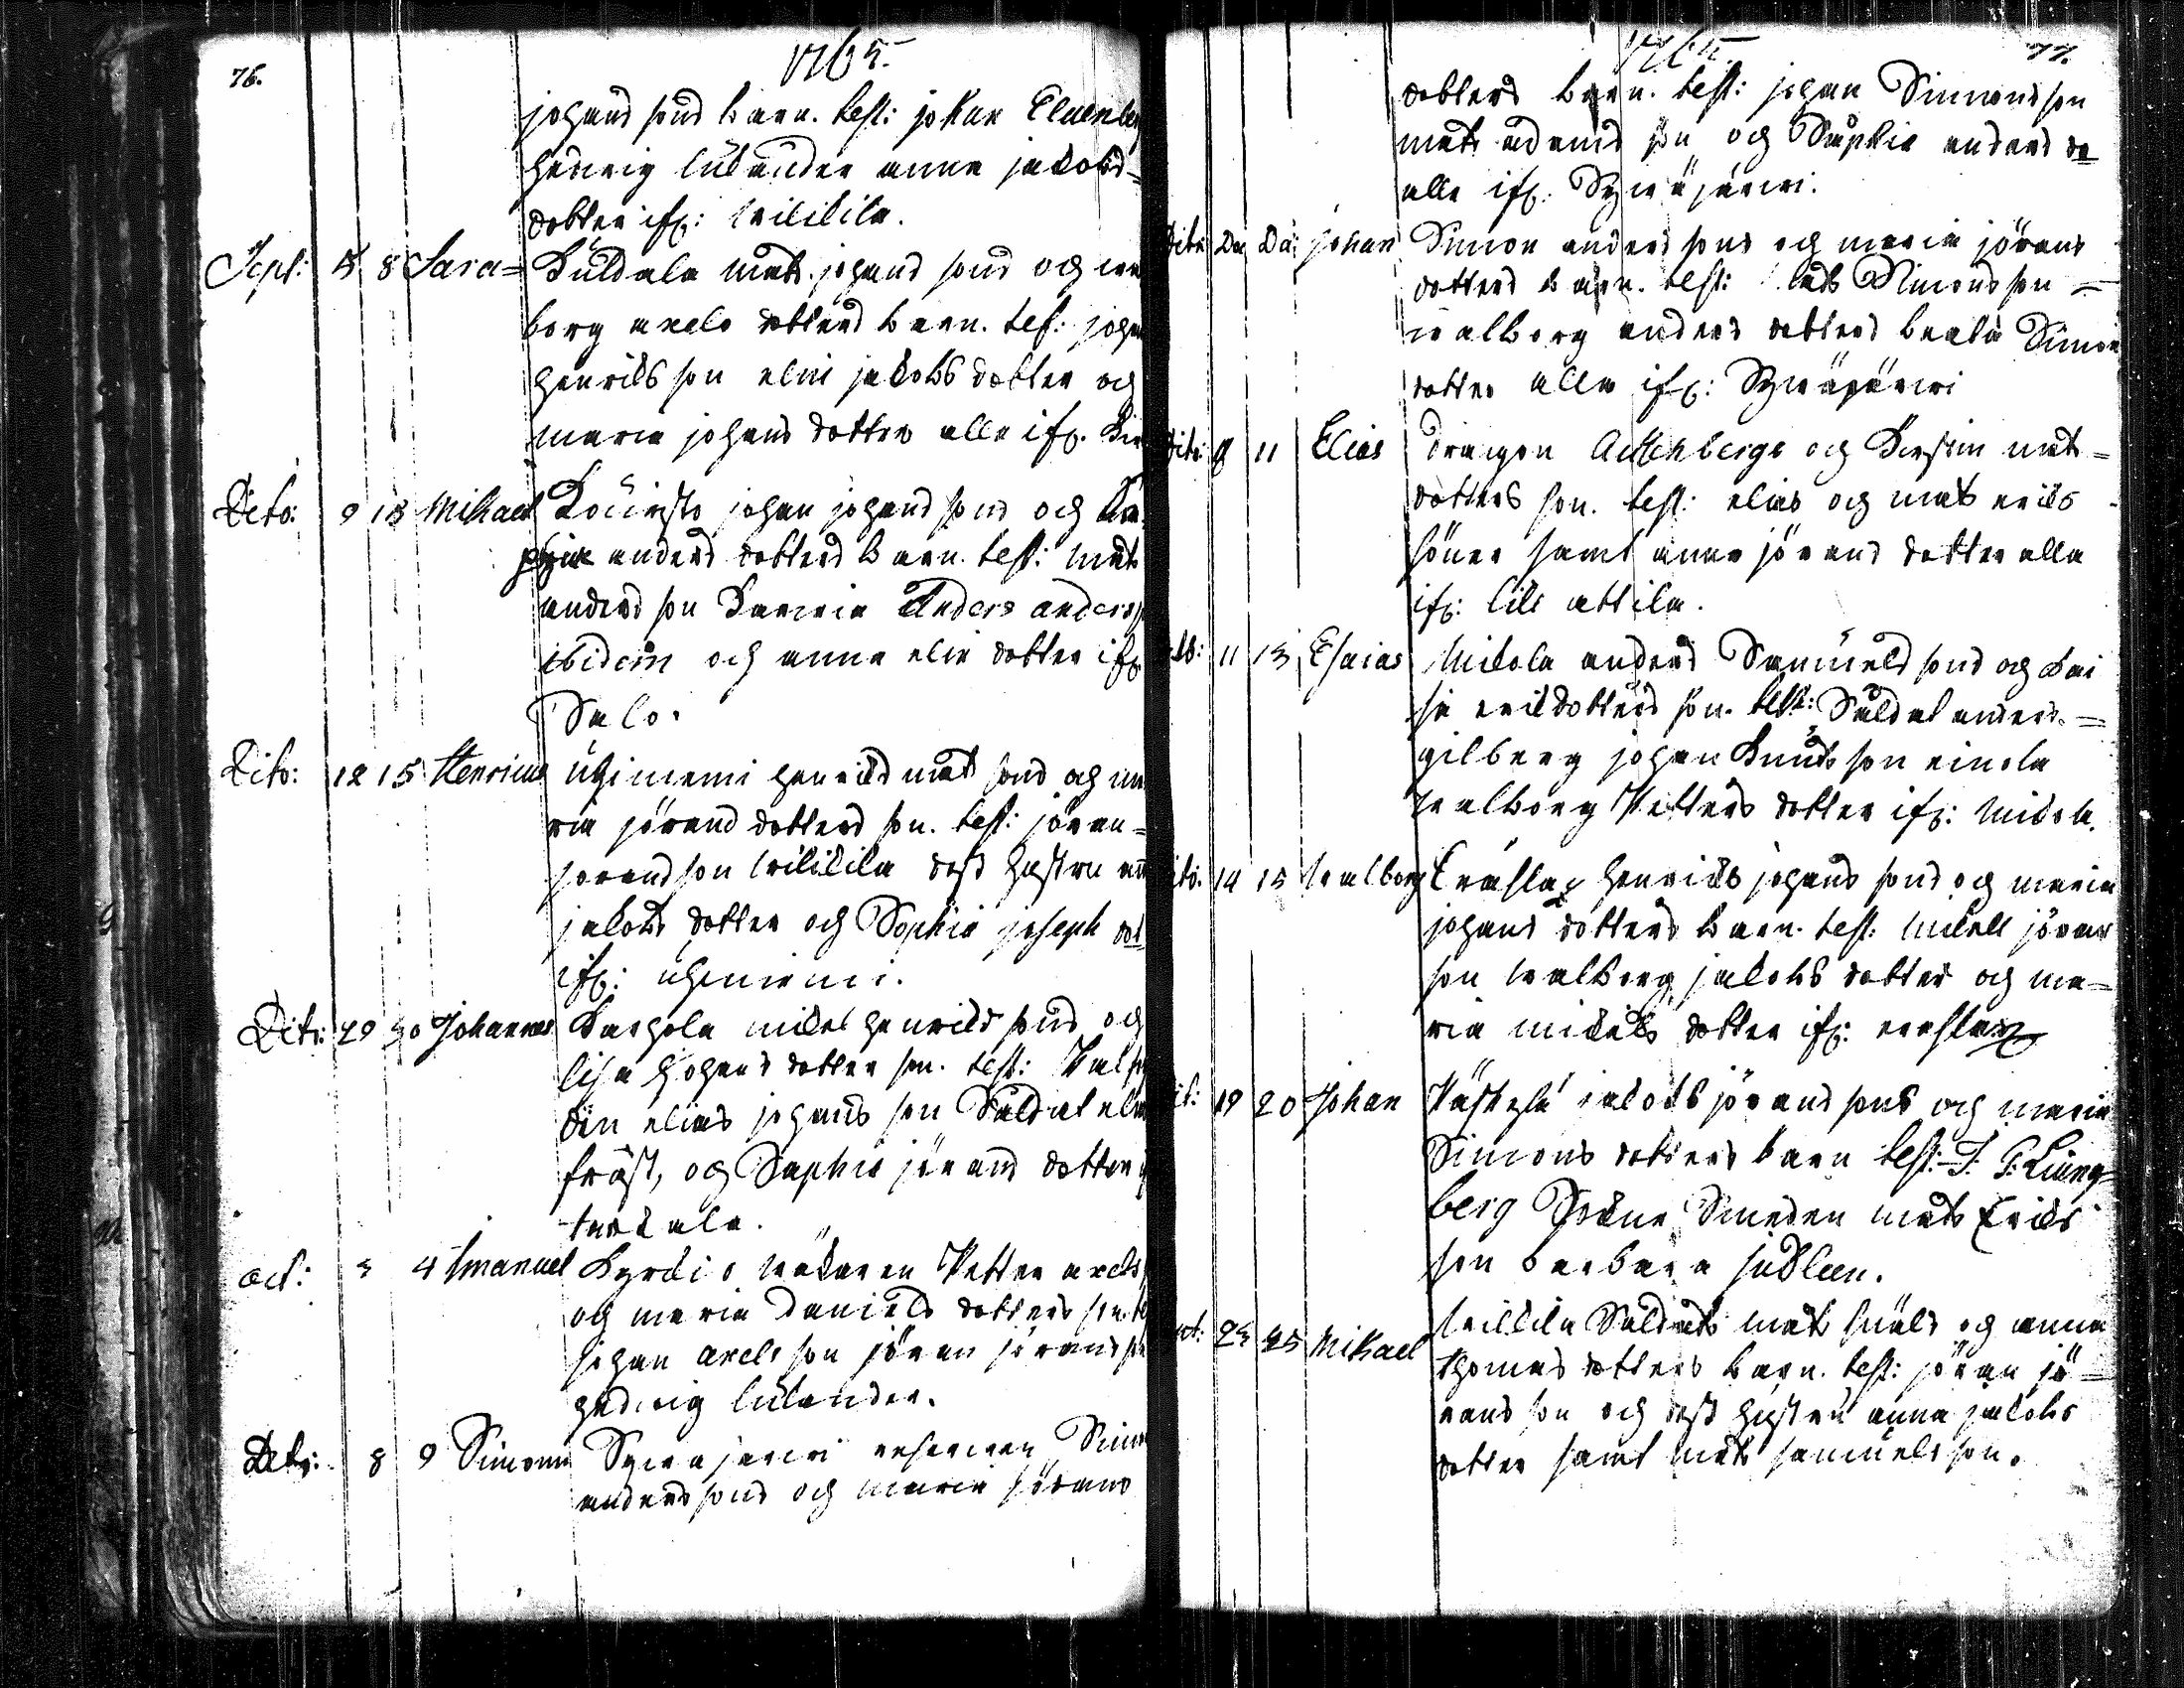 76.
1765.
johans sons barn. test: johan Eluenber
hedvig lilander anna jakobs=
dotter ifr: kilikila.
Sept: 5 8 Sara= Kuldala mats johans sons och wa
borg axels dotters barn. test: joha
henriks son elin jakobs dotter och
maria johans dotter alla ifr.
Dito: 9 13 Mikael johan johans sons och
phia anders dotters barn. test: mats
anders son Anders anders
ibidem och anna elia dotter ifr
Salo.
Dito: 12 15 Henricus uhiniemi henriks mats sons och ma
ria jörans dotters son. test: jöran=
jorans son kilikila dess hustru an
jakobs dotter och Sophia joseph dot
ifr: uhiniemi.
Dito: 29 30 Johannes Karhola mikel henriks sons och
lisa johans dotter son. test:
din elias johans son Saldat elia
fräst, och Saphia jörans dotter
turkala.
oct: 3 4 Imanuel Kyrkio wäkaren Petter axels
och maria Daniels dotters son. te
johan axels son jöran jörans son
hedvig lilander.
Dito: 8 9 Simon Syväjärvi Simo
anders sons och maria jörans
1765. 77.
dotters barn. test: johan Simons son
mats adams son och Saphia anders do
alla ifr. Syväjärvi.
Dito Do Do: johan Simon anders sons och maria jörans
dotters barn. test: mats Simons son =
walborg anders dotters beata Simon
dotter alla ifr: Syväjärvi
Dito: 8 11 Elias dragon Achenbergs och Kirstin mats=
dotters son. test: elias och mats eriks
söner samt anna jörans dotter alla
ifr: lill attila.
dito: 11 13 Esaias Mikola anders Samuels sons och kai
sa eriksdotters son. test: Saldat anders=
gilberg johan Knuts son einola
walborg Petters dotter ifr: mikola.
dito: 14 15 walborg Eräslax henriks johans sons och maria
johans dotters barn. test: mikell jöran
son walborg jakobs dotter och ma=
ria mikels dotter ifr: eräslax
dit: 19 20 Johan jakobs jörans sons och maria
Simons dotters barn test: J. G: Liung=
berg Sokne Smeden mats Eriks
son barbara jusleen.
oct: 23 25 Mikael kilkila Saldats mats och anna
thomas dotters barn. test: jöran jö=
rans son och dess hustru anna jakobs
dotter samt mats samuels son.